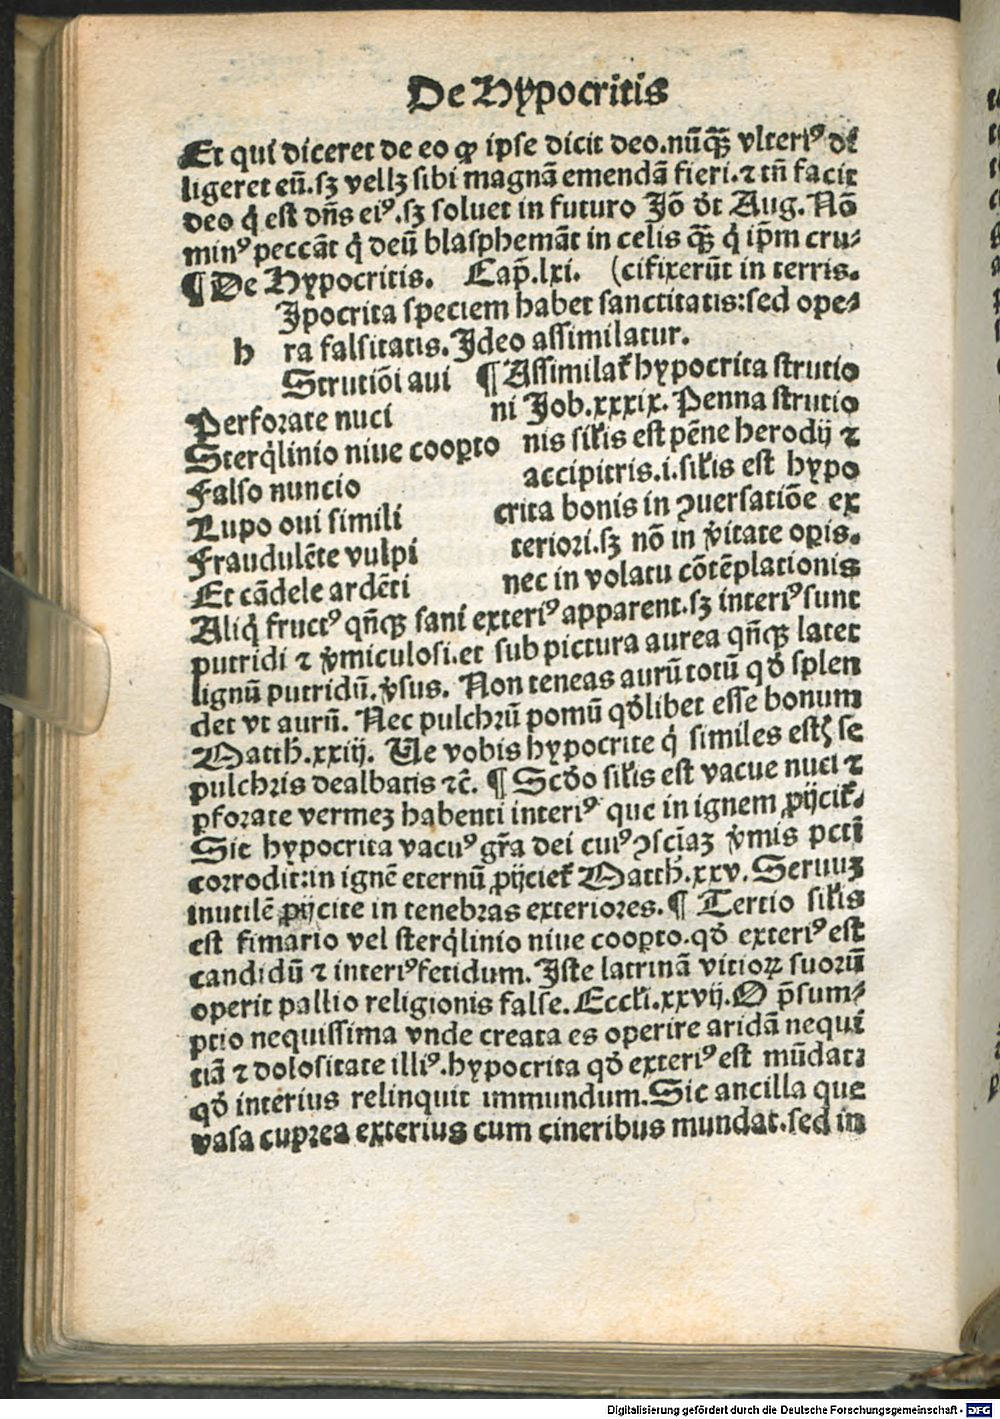 De Hypocritis
Et qui diceret de eo ꝙ ipse dicit deo.nūꝗ̄ᷓ vlteriꝰ di
ligeret eū.sꝫ vellꝫ sibi magnā emendā fieri.⁊ tn̄ facit
deo q̇ est dn̄s eiꝰ.sꝫ soluet in futuro Iō dt̄ Aug. Nō
minꝰ peccāt q̇ deū blasphemāt in celis ꝗᷓꝫ q̇ ip̄m cru⸗
¶ De Hypocritis. Cap̄.lxi. (cifixerūt in terris.
Ipocrita speciem habet sanctitatis:sed ope⸗
h ra falsitatis. Ideo assimilatur.
Strutiōi aui ¶ Assimilat̄ hypocrita strutio
Perforate nuci ni Job.xxxix. Penna strutio
Sterq̇linio niue cooꝑto nis sil̄is est pēne herodij ⁊
Falso nuncio accipitris.i.sil̄is est hypo
Lupo oui simili crita bonis in ꝯuersatiōe ex
Fraudulēte vulpi teriori.sꝫ nō in v̄itate oꝑis.
Et cādele ardēti nec in volatu cōtēplationis
Aliq̇ fructꝰ qn̄qꝫ sani exteriꝰ apparent.sꝫ interiꝰ sunt
putridi ⁊ v̄miculosi.et sub pictura aurea qn̄qꝫ latet
lignū putridū.v̄sus. Non teneas aurū totū qd̄ splen
det vt aurū. Nec pulchrū pomū qd̄libet esse bonum
Matth.xxiij. Ue vobis hypocrite q̇ similes est̄ se
pulchris dealbatis ⁊c̄. ¶ Scd̄o sil̄is est vacue nuci ⁊
ꝑforate vermeꝫ habenti interiꝰ que in ignem ꝓijcit̄.
Sic hypocrita vacuꝰ gr̄a dei cuiꝰ ꝯsciaꝫ v̄mis pctī
corrodit:in ignē eternū ꝓijciet̄ Matth.xxv. Seruuꝫ
inutilē ꝓijcite in tenebras exteriores. ¶ Tertio sil̄is
est fimario vel sterq̇linio niue cooꝑto.qd̄ exteriꝰ est
candidū ⁊ interiꝰ fetidum. Iste latrinā vitioꝝ suorū
operit pallio religionis false. Eccl̄i.xxvij. O p̄sum⸗
ptio nequissima vnde creata es operire aridā nequi
tiā ⁊ dolositate illiꝰ.hypocrita qd̄ exteriꝰ est mūdat:
qd̄ interius relinquit immundum. Sic ancilla que
vasa cuprea exterius cum cineribus mundat.sed in
Digitalisierung gefördert durch die Deutsche Forschungsgemeinschaft - DFG